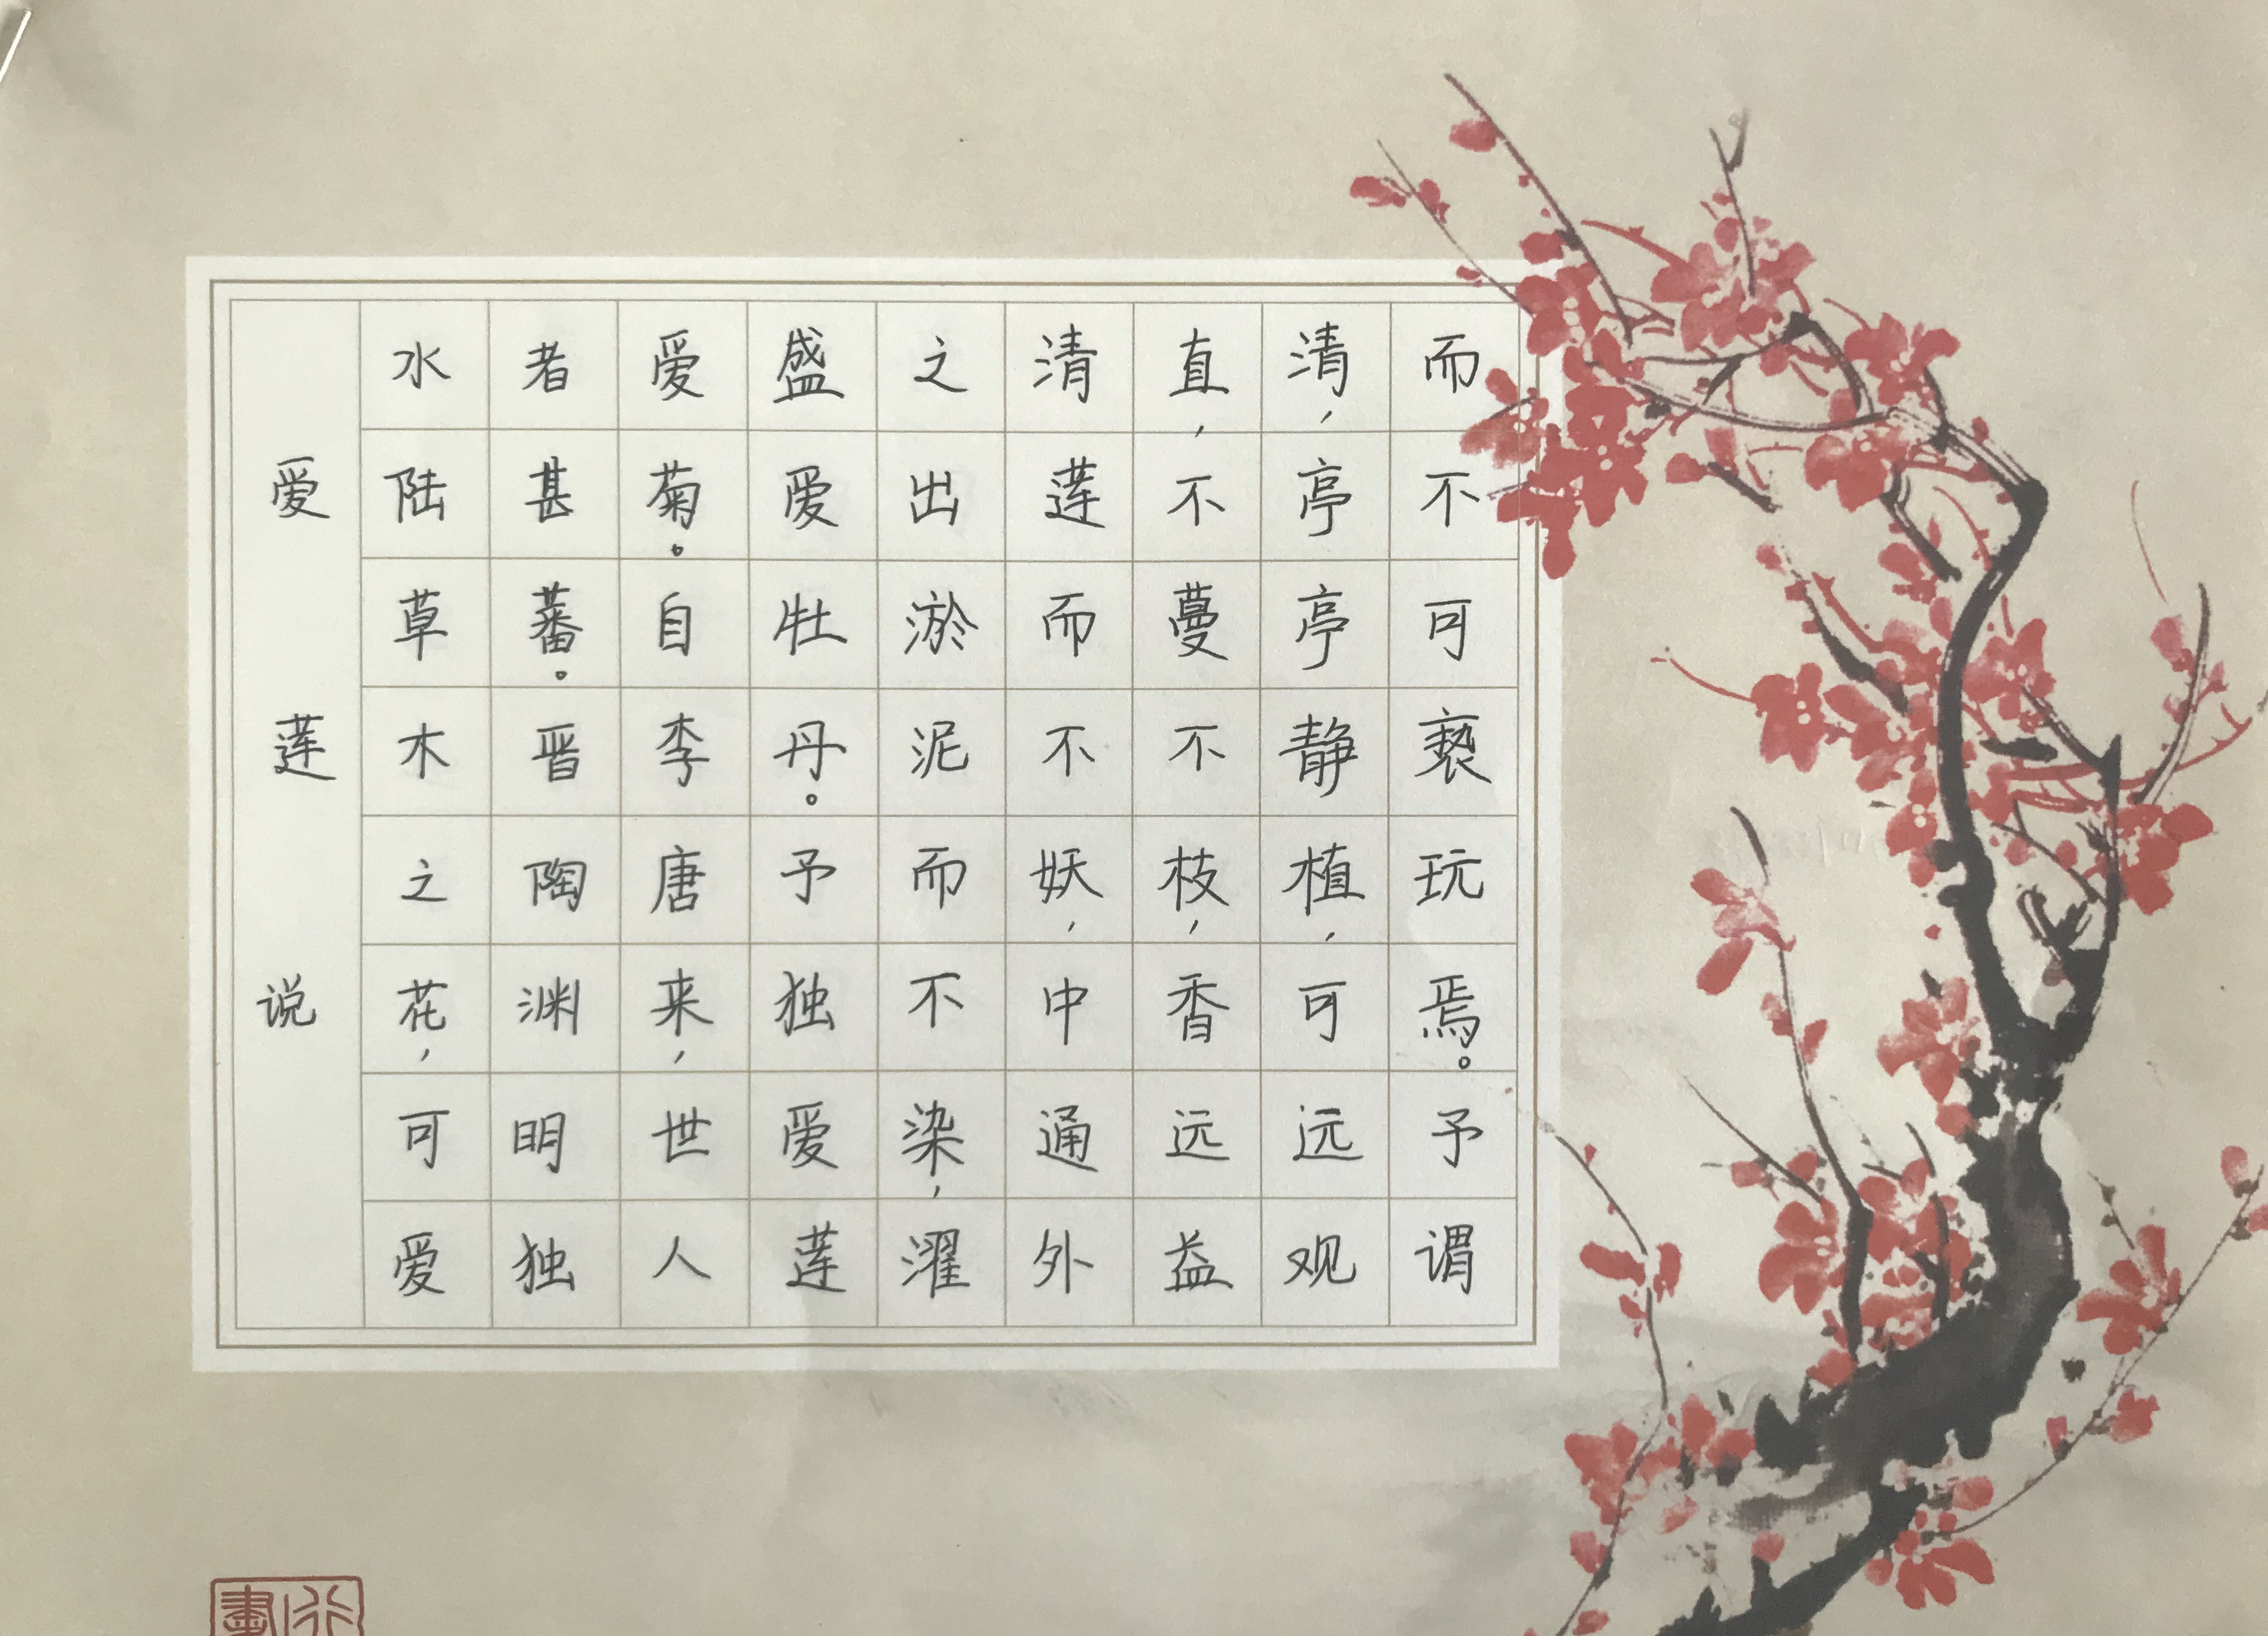 爱莲说
水陆草木之花，可爱
者甚蕃。晋陶渊明独
爱菊。自李唐来，世人
盛爱牡丹。予独爱莲
之出淤泥而不染，濯
清莲而不妖，中通外
直，不蔓不枝，香远益
清，亭亭静植，可远观
而不可亵玩焉。予谓